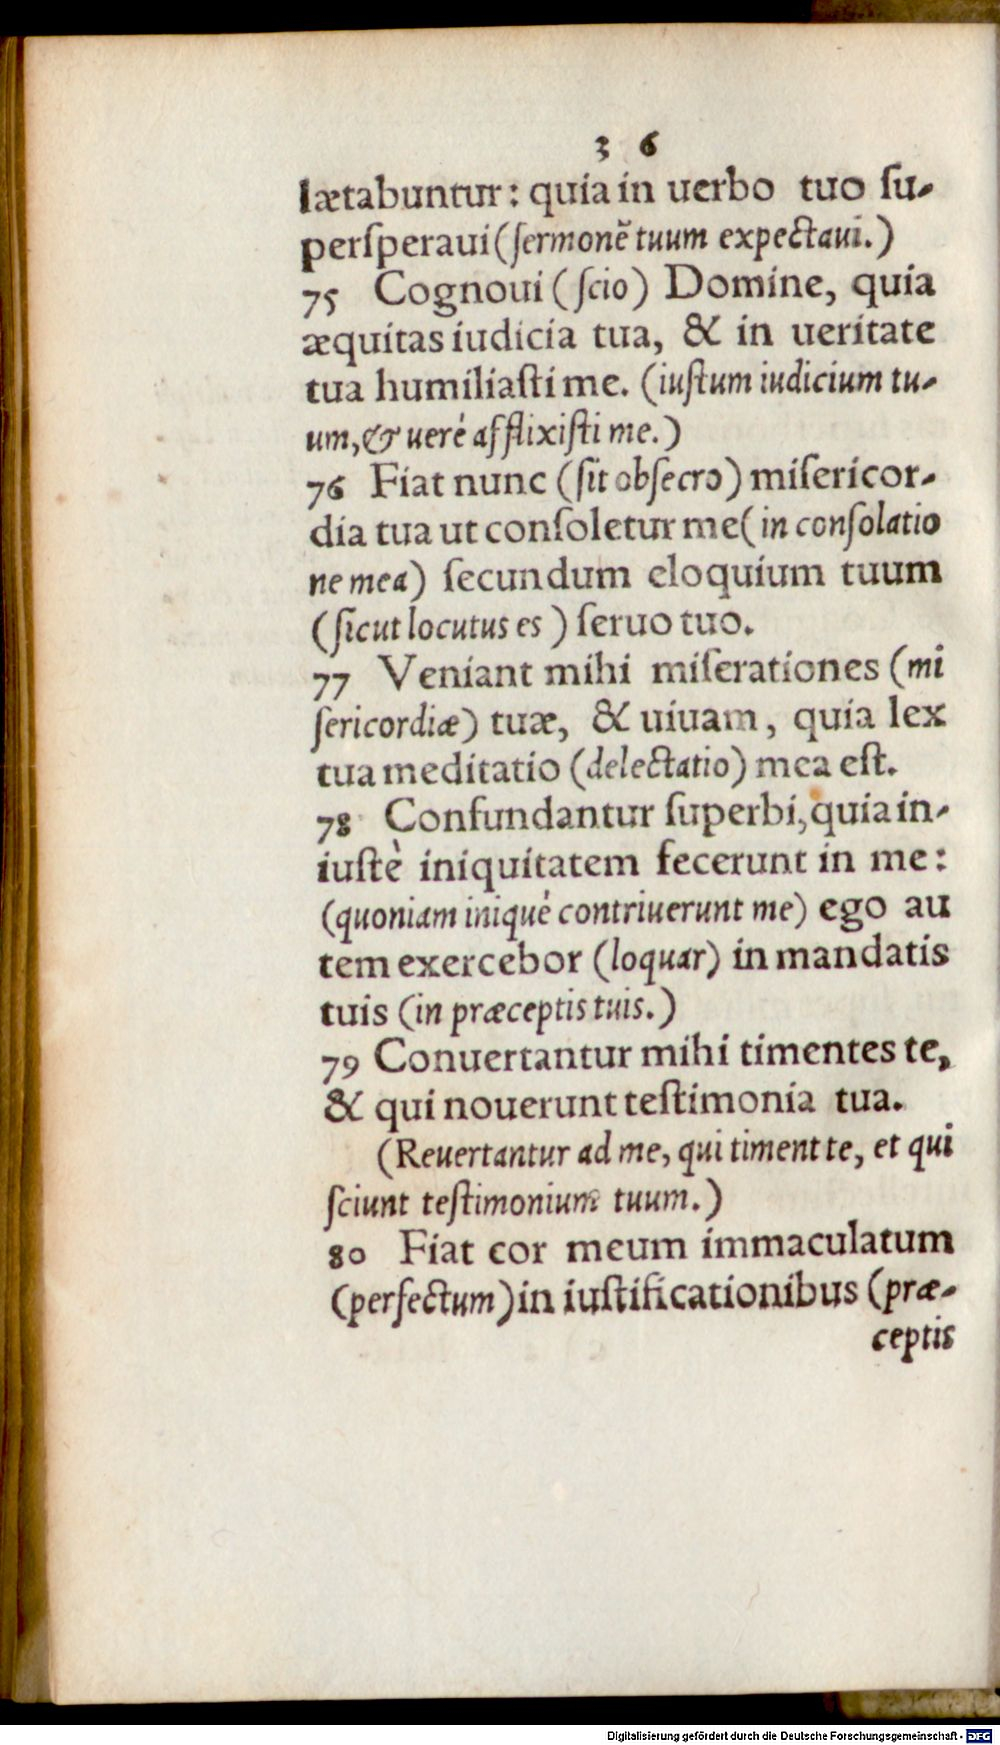 3 6
lætabuntur: quia in uerbo tuo su-
persperaui (sermonē tuum expectaui.)
75 Cognoui (scio) Domine, quia
æquitas iudicia tua, & in ueritate
tua humiliasti me. (iustum iudicium tu-
um, & uerè afflixisti me.)
76 Fiat nunc (sit obsecro) misericor-
dia tua ut consoletur me (in consolatio
ne mea) secundum eloquium tuum
(sicut locutus es) seruo tuo.
77 Veniant mihi miserationes (mi
sericordiæ) tuæ, & uiuam, quia lex
tua meditatio (delectatio) mea est.
78 Confundantur superbi, quia in-
iustè iniquitatem fecerunt in me:
(quoniam iniquè contriuerunt me) ego au
tem exercebor (loquar) in mandatis
tuis (in præceptis tuis.)
79 Conuertantur mihi timentes te,
& qui nouerunt testimonia tua.
(Reuertantur ad me, qui timent te, et qui
sciunt testimonium tuum.)
80 Fiat cor meum immaculatum
(perfectum) in iustificationibus (præ-
ceptis
Digitalisierung gefördert durch die Deutsche Forschungsgemeinschaft - DFG